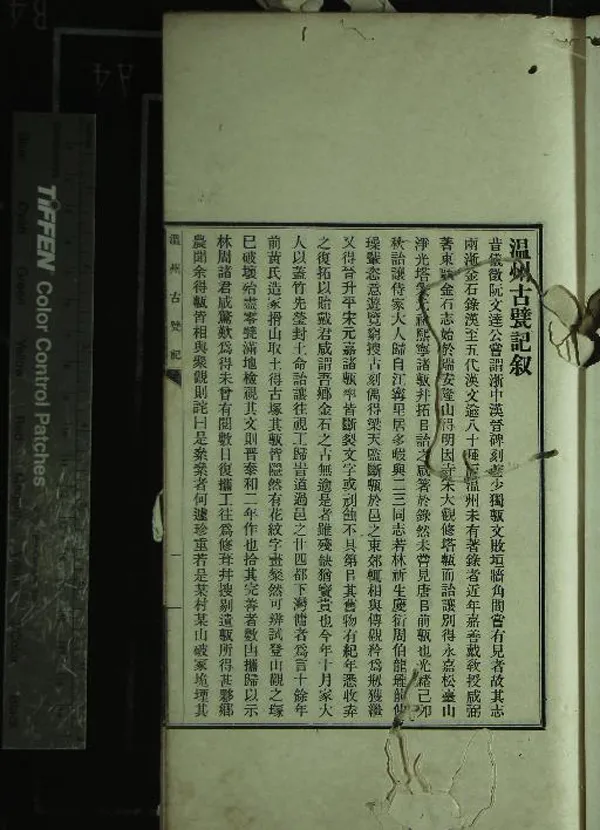 温州古甓記叙
昔儀徵阮文達公嘗謂浙中漢晉碑刻至少獨甎文敗垣牆角間嘗有見者故其志
兩浙金石錄漢至五代漢文逾八十種而溫州未有著錄者近年嘉善戴敎授咸弼
著東甌金石志始於瑞安隆山得明因寺宋大觀修塔甎而詒讓別得永嘉松臺山
淨光塔宋元祐熙寧諸甎幷拓㠯詒之咸箸於錄然未嘗見唐㠯前甎也光緒己卯
秋詒讓侍家大人歸自江寧里居多暇與二三同志若林祈生慶衍周伯龍瓏龍仲
璪輩恣意遊覽窮搜古刻偶得梁天監斷甎於邑之東郊輒相與傳觀矜爲創獲繼
又得晉升平宋元嘉諸甎率皆斷裂文字或刓蝕不具第㠯其舊物有紀年悉收弆
之復拓以貽戴君咸謂吾鄉金石之古無逾是者雖殘缺猶寳貴也今年十月家大
人以蓋竹先塋封土命詒讓往視工歸嵒道過邑之廿四都下灣傭者爲言十餘年
前黃氏造冢掃山取土得古塚其甎皆隱然有花紋字畫粲然可辨試登山觀之塚
已破壞殆盡零甓滿地檢視其文則晉泰和二年作也拾其完善者數凷攜歸以示
林周諸君咸驚歎爲得未曾有閱數日復攜工往爲修葺并搜剔遺甎所得甚夥鄉
農聞余得甎皆相與聚觀則詫曰是纍纍者何遽珍重若是某村某山破冢埼堙其
溫州古甓記
一
Tiffen Color Control Patches